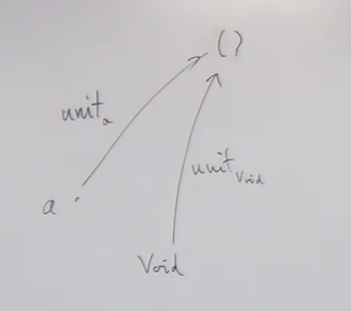 ()
unit_a
unit_Void
a
Void